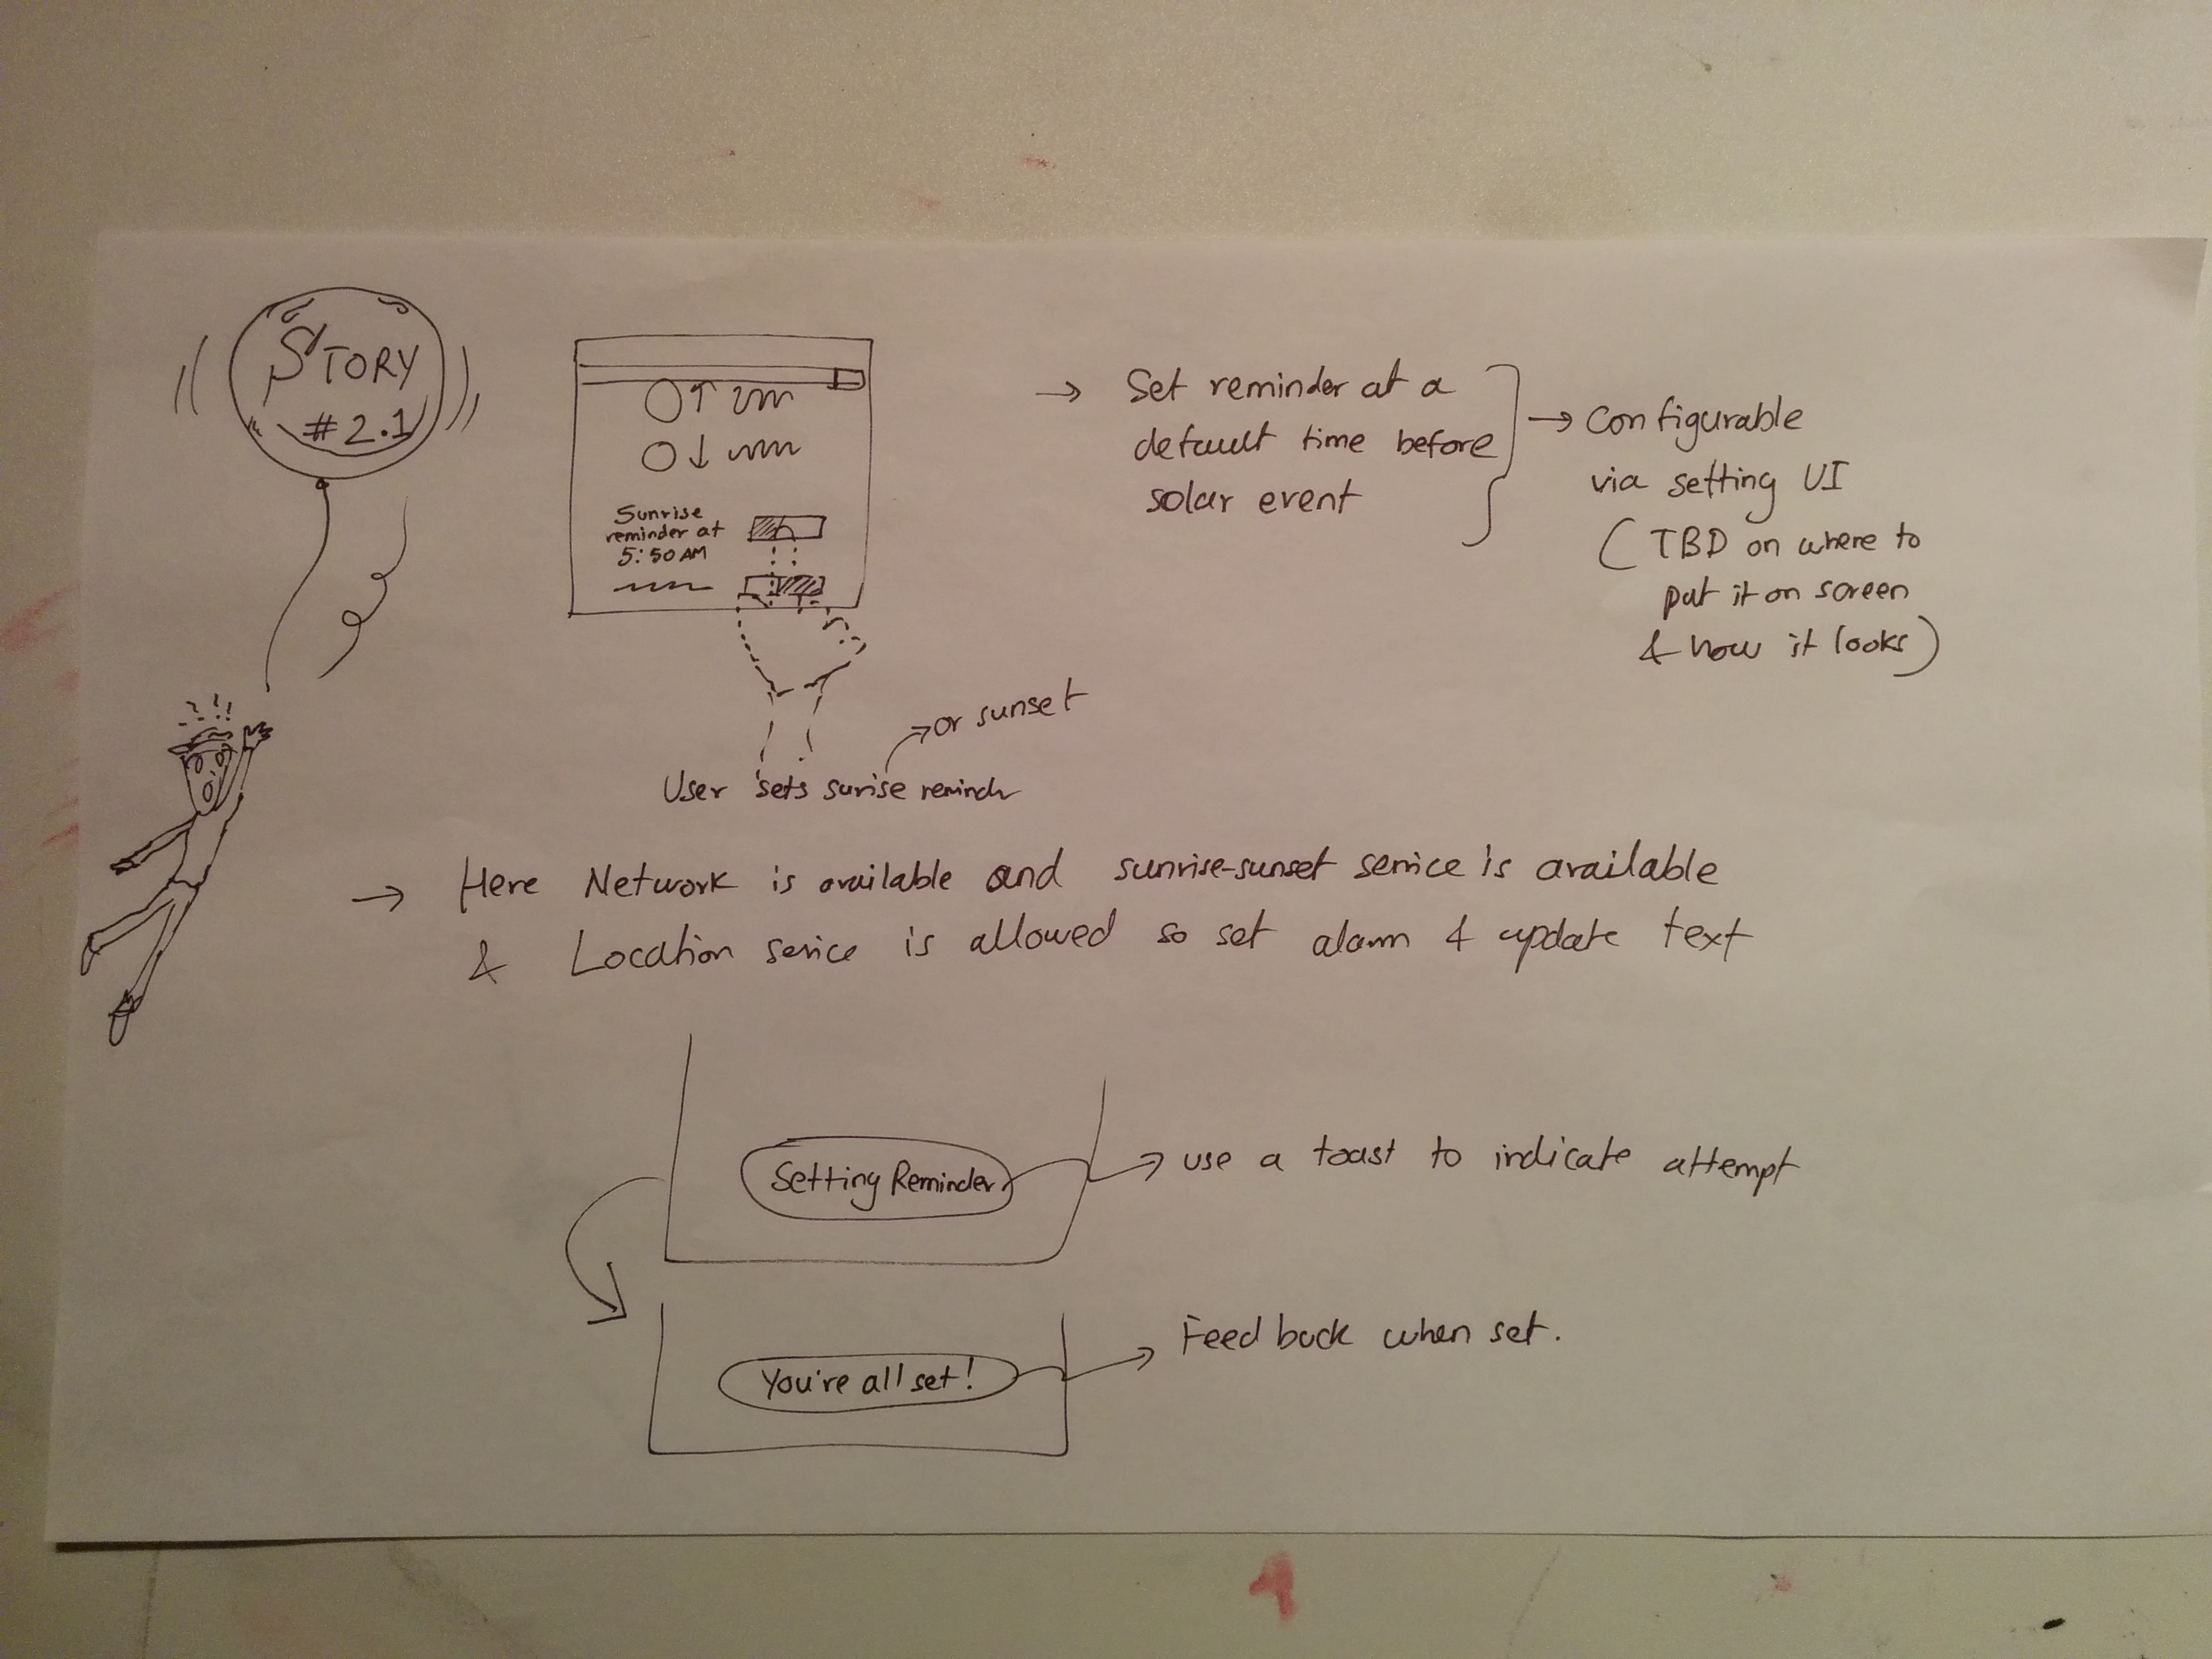 STORY
#2.1
Sunrise
reminder at
5:50 AM
→ Set reminder at a
default time before
solar event
→ Configurable
via setting UI
(TBD on where to
put it on screen
& how it looks)
→ or sunset
User sets surise remindr
→ Here Network is available and sunrise-sunset service is available
& Location serice is allowed so set alarm & update text
Setting Reminder
→ use a toast to indicate attempt
You're all set!
→ Feedback when set.